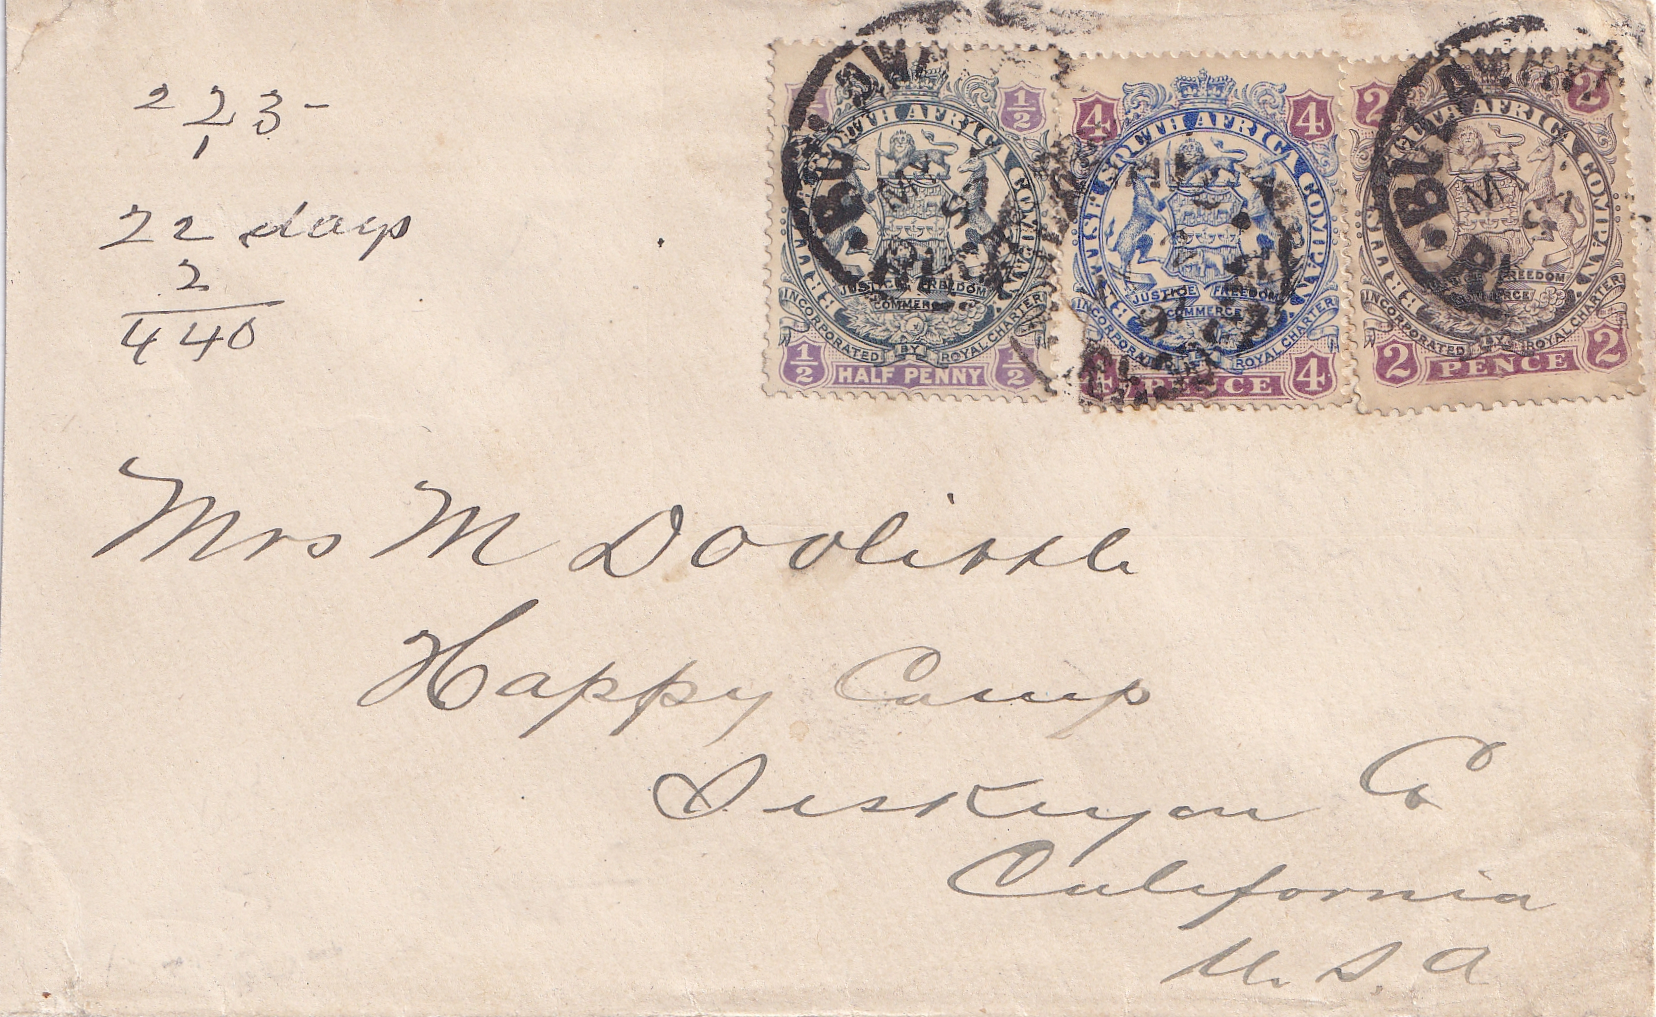 2 2 3 -
1
22 days
2
4 40
½ ½
SOUTH AFRICA COMPANY
JUSTICE FREEDOM
COMMERCE
INCORPORATED BY ROYAL CHARTER
½ HALF PENNY ½
4 4
SOUTH AFRICA COMPANY
JUSTICE FREEDOM
COMMERCE
INCORPORATED ROYAL CHARTER
4 PENCE 4
2 2
SOUTH AFRICA COMPANY
FREEDOM
INCORPORATED BY ROYAL CHARTER
2 PENCE 2
Mrs M Doolittle
Happy Camp
Siskiyou Co
California
U. S. A